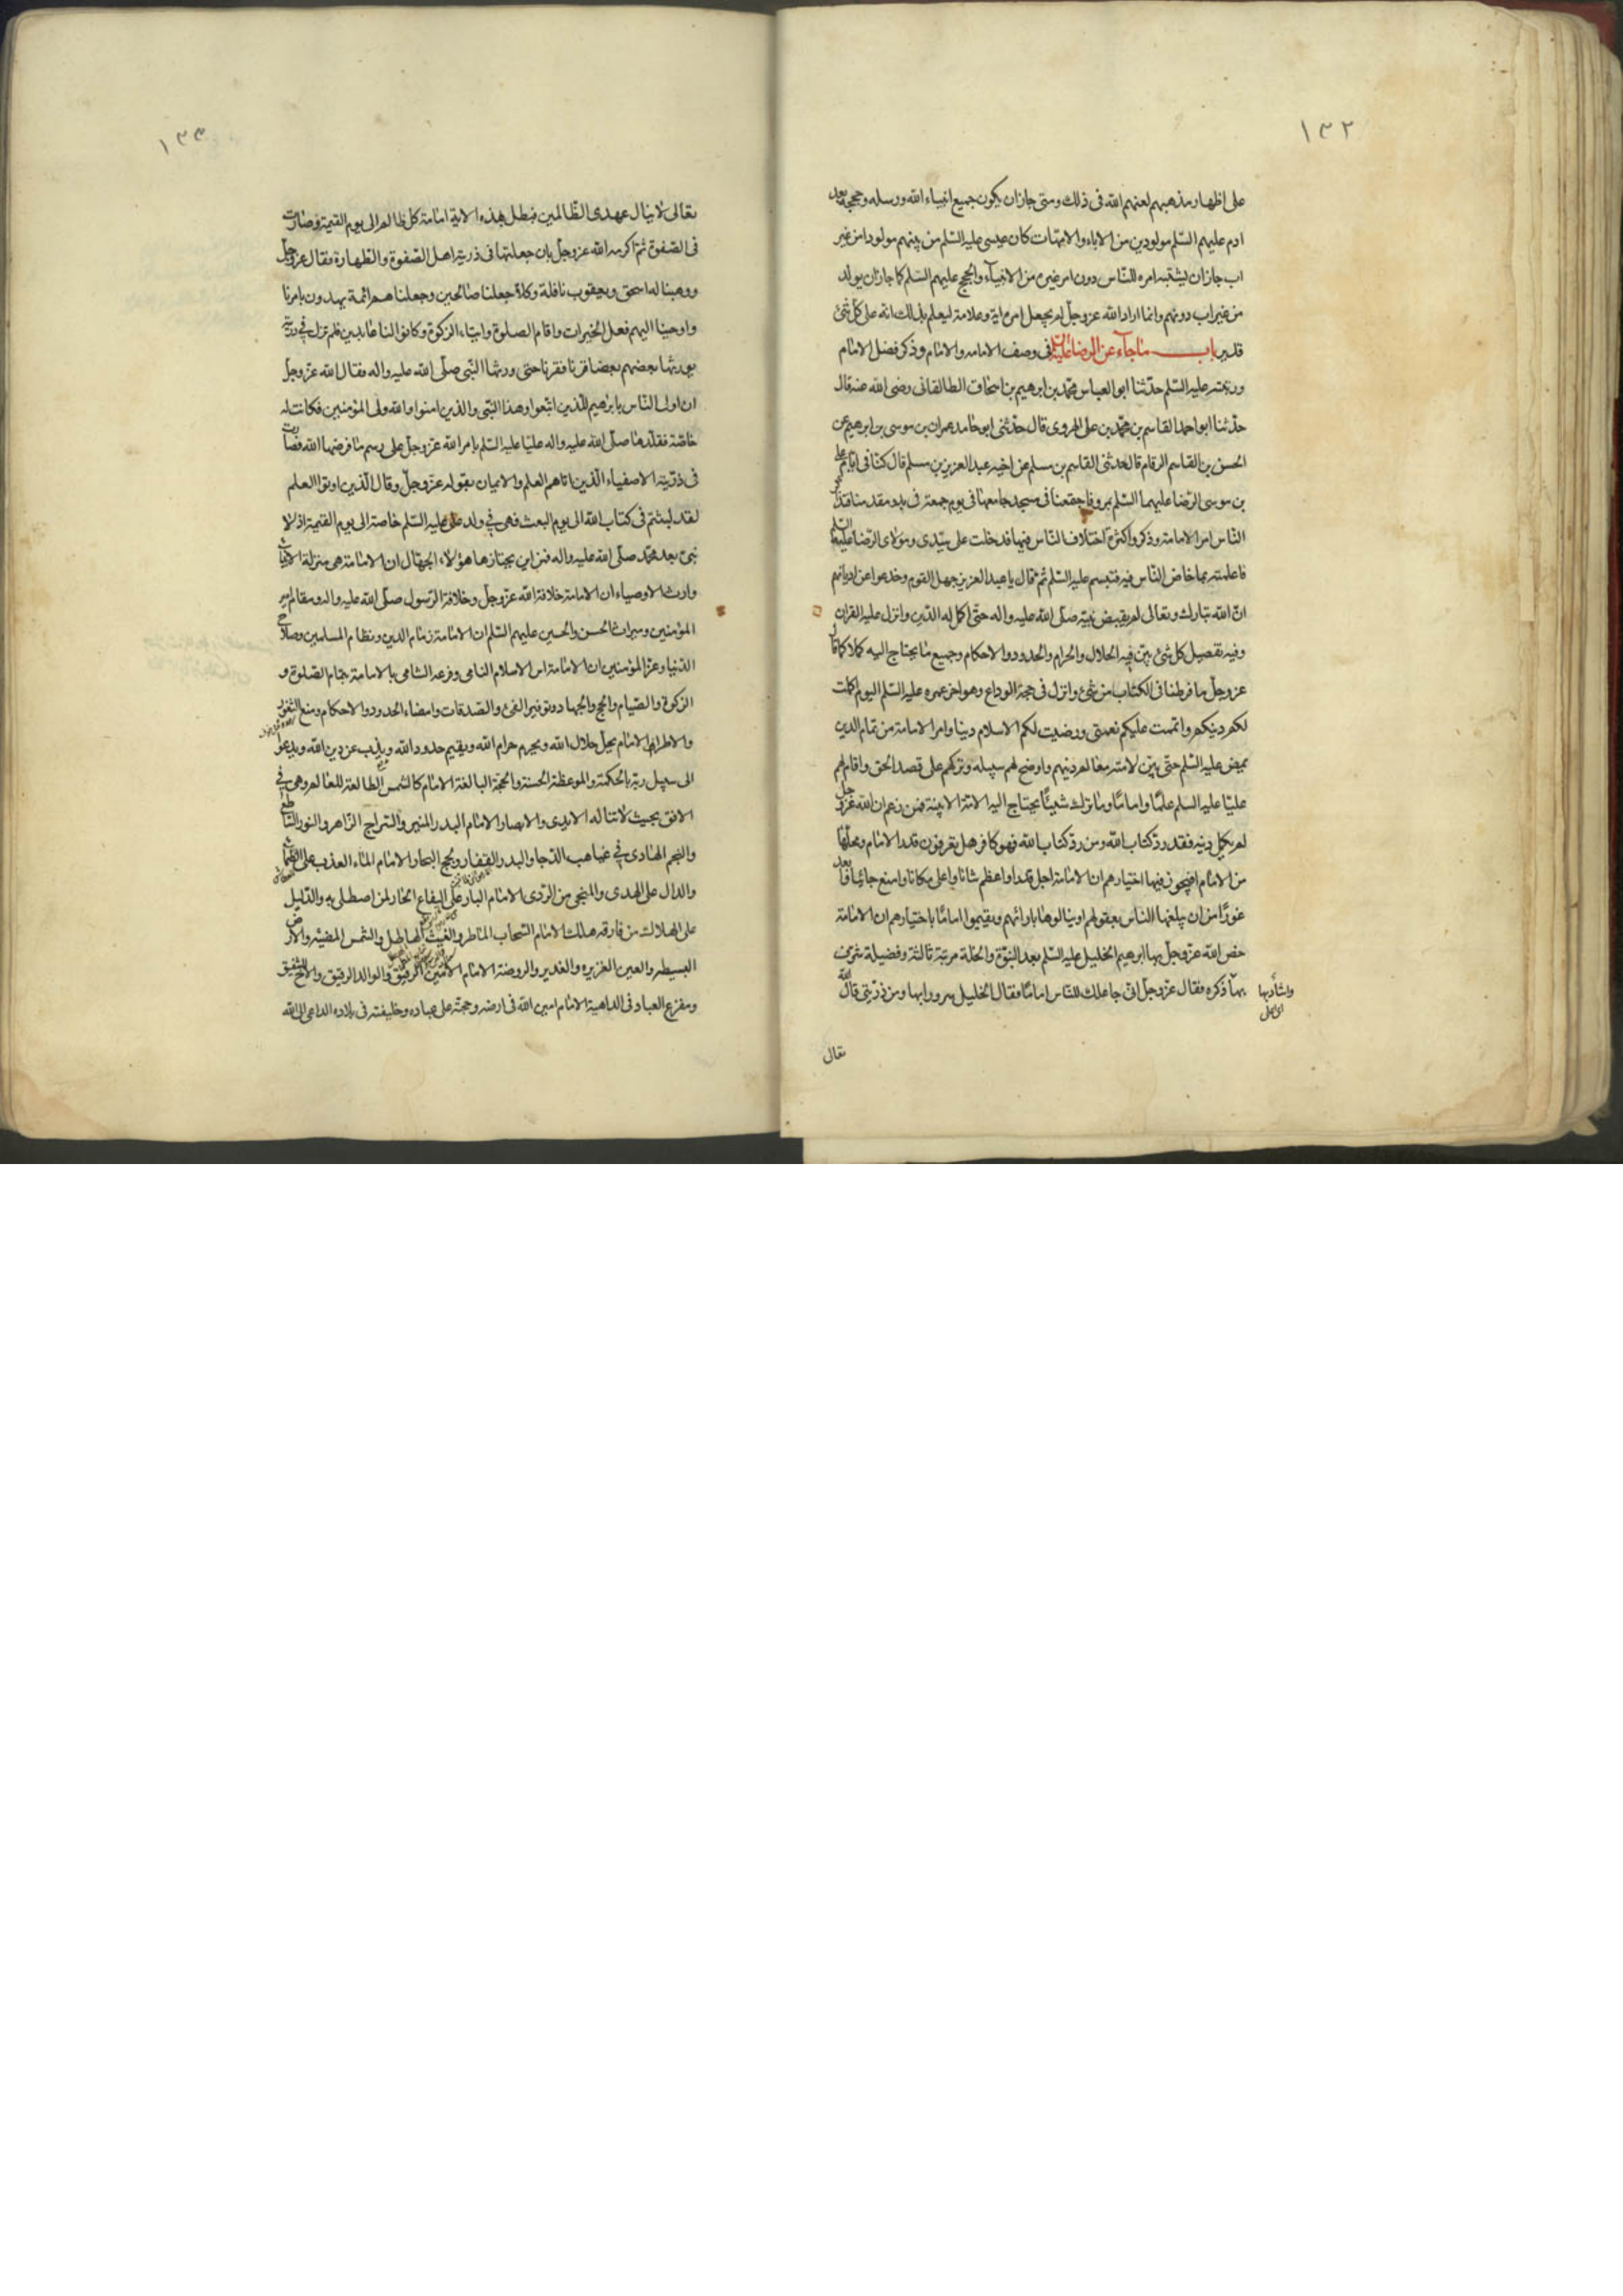 ١٣٢
على اظهار مذهبهم لعنهم الله فى ذلك ومتى جاز ان يكون جميع انبياء الله ورسله وحججه بعد
ادم عليهم السلم مولودين من الاباء والامهات كان عيسى عليه السلم من بينهم مولودا من غير
اب جاز ان يشتبه امره للناس دون امر غيره من الانبياء والحجج عليهم السلم كما جاز ان يولد
من غير اب دونهم وانما اراد الله عز وجل ان يجعل امره اية وعلامة ليعلم بذلك انه على كل شئ
قدير باب ما جاء عن الرضا عليه السلم فى وصف الامامه والامام وذكر فضل الامام
ورتبته عليه السلم حدثنا ابو العباس محمد بن ابرهيم بن اسحاق الطالقانى رضى الله عنه قال
حدثنا ابو احمد القاسم بن محمد بن على الهروى قال حدثنى ابو حامد عمران بن موسى بن ابرهيم عن
الحسن بن القاسم الرقام قال حدثنى القاسم بن مسلم عن اخيه عبد العزيز بن مسلم قال كنا فى ايام على
بن موسى الرضا عليهما السلم بمرو فاجتمعنا فى مسجد جامعها فى يوم جمعة فى بدو مقدمنا فدار
الناس امر الامامة وذكروا كثرة اختلاف الناس فيها فدخلت على سيدى ومولاى الرضا عليه السلم
فاعلمته بما خاض الناس فيه فتبسم عليه السلم ثم قال يا عبد العزيز جهل القوم وخدعوا عن اديانهم
ان الله تبارك وتعالى لم يقبض نبيه صلى الله عليه واله حتى اكمل له الدين وانزل عليه القران
وفيه تفصيل كل شئ بين فيه الحلال والحرام والحدود والاحكام وجميع ما يحتاج اليه كملا كما قال
عز وجل ما فرطنا فى الكتاب من شئ وانزل فى حجة الوداع وهو اخر عمره عليه السلم اليوم اكملت
لكم دينكم واتممت عليكم نعمتى ورضيت لكم الاسلام دينا وامر الامامة من تمام الدين
يمض عليه السلم حتى بين لامته معالم دينهم واوضح لهم سبيله وتركهم على قصد الحق واقام لهم
عليا عليه السلم علما واماما وما ترك شيئا يحتاج اليه الامة الا بينه فمن زعم ان الله عز وجل
لم يكمل دينه فقد رد كتاب الله ومن رد كتاب الله فهو كافر هل يعرفون قدر الامام ومحلها
من الامام افيجوز فيها اختيارهم ان الامامة اجل قدرا واعظم شانا واعلى مكانا وامنع جانبا وابعد
غورا من ان يبلغها الناس بعقولهم او ينالوها بارائهم ويقيموا اماما باختيارهم ان الامامة
خص الله عز وجل بها ابرهيم الخليل عليه السلم بعد النبوة والخلة مرتبة ثالثة وفضيلة شرفه
بها ذكره فقال عز وجل انى جاعلك للناس اماما فقال الخليل سرورا بها ومن ذريتى قال الله
واشاد بها
اى اعلى
تعالى
١٣٣
تعالى لا ينال عهدى الظالمين فبطل بهذه الاية امامة كل ظالم الى يوم القيمة وصارت
فى الصفوة ثم اكرمه الله عز وجل بان جعلتها فى ذرية اهل الصفوة والطهارة فقال عز وجل
ووهبنا له اسحق ويعقوب نافلة وكلا جعلنا صالحين وجعلناهم ائمة يهدون بامرنا
واوحينا اليهم فعل الخيرات واقام الصلوة وايتاء الزكوة وكانوا لنا عابدين فلم تزل فى ذريته
يورثها بعضهم بعضا قرنا فقرنا حتى ورثها النبى صلى الله عليه واله فقال الله عز وجل
ان اولى الناس بابرهيم للذين اتبعوا وهذا النبى والذين امنوا والله ولى المؤمنين فكانت له
خاصة فقلدها صلى الله عليه واله عليا عليه السلم بامر الله عز وجل على رسم ما فرضها الله فصارت
فى ذريته الاصفياء الذين اتاهم العلم والايمان بقوله عز وجل وقال الذين اوتوا العلم
لقد لبثتم فى كتاب الله الى يوم البعث فهى فى ولد على عليه السلم خاصة الى يوم القيمة اذ لا
نبى بعد محمد صلى الله عليه واله فمن اين يختارها هؤلاء الجهال ان الامامة هى منزلة الانبياء
وارث الاوصياء ان الامامة خلافة الله عز وجل وخلافة الرسول صلى الله عليه واله ومقام امير
المؤمنين وميراث الحسن والحسين عليهم السلم ان الامامة زمام الدين ونظام المسلمين وصلاح
الدنيا وعز المؤمنين ان الامامة اس الاسلام النامى وفرعه السامى بالامامة تمام الصلوة و
الزكوة والصيام والحج والجهاد وتوفير الفئ والصدقات وامضاء الحدود والاحكام ومنع الثغور
والاطراف الامام يحل حلال الله ويحرم حرام الله ويقيم حدود الله ويذب عن دين الله ويدعوا
الى سبيل ربه بالحكمة والموعظة الحسنة والحجة البالغة الامام كالشمس الطالعة للعالم وهى فى
الافق بحيث لا تناله الايدى والابصار الامام البدر المنير والسراج الزاهر والنور الساطع
والنجم الهادى فى غياهب الدجا والبدر القفار ولجج البحار الامام الماء العذب على الظماء
والدال على الهدى والمنجى من الردى الامام النار على اليفاع الحار لمن اصطلى به والدليل
على الهلالك من فارقه هالك الامام السحاب الماطر والغيث الهاطل والشمس المضيئه والارض
البسيطه والعين الغزيره والغدير والروضة الامام الامين الرفيق والوالد الرقيق والاخ الشفيق
ومفزع العباد فى الداهية الامام امين الله فى ارضه وحجته على عباده وخليفته فى بلاده الداعى الى الله